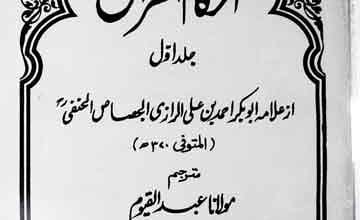 احکام القرآن
جلد اول
از علامہ ابوبکر احمد بن علی الرازی الجصاص الحنفی رح
(المتوفی ۳۷۰ھ)
مترجم
مولانا عبد القیوم